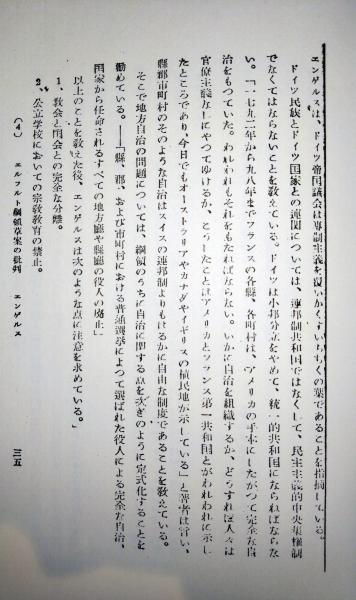 エンゲルスは、ドイツ帝国議会は専制主義を覆いかくすいちぢくの葉であることを指摘している。
ドイツ民族とドイツ国家との連関については、連邦制共和国ではなくして、民主主義的中央集権制
でなくてはならないことを教えている。ドイツは小邦分立をやめて、統一的共和国にならねばならな
い。「一七九二年から九八年までフランスの各縣、各町村は、アメリカの手本にしたがつて完全な自
治をもつていた。われわれもそれをもたねばならない。いかに自治を組織するか、どうすれば人々は
官僚主義なしにやつてゆけるか、こうしたことはアメリカとフランス第一共和国とがわれわれに示し
たところであり、今日でもオーストラリアやカナダやイギリスの植民地が示している」と著者は言い、
縣郡市町村のそのような自治はスイスの連邦制よりもはるかに自由な制度であることを教えている。
そこで地方自治の問題については、綱領のうちに自治に関する点を次ぎのように定式化することを
勧めている。――「縣、郡、および市町村における普通選挙によつて選ばれた役人による完全な自治、
国家から任命されるすべての地方廳や縣廳の役人の廃止」
以上のことを教えた後、エンゲルスは次のような点に注意を求めている。」
1、教会と国会との完全な分離。
2、公立学校においての宗教教育の禁止。
(4) エルフルト綱領草案の批判 エンゲルス
三五